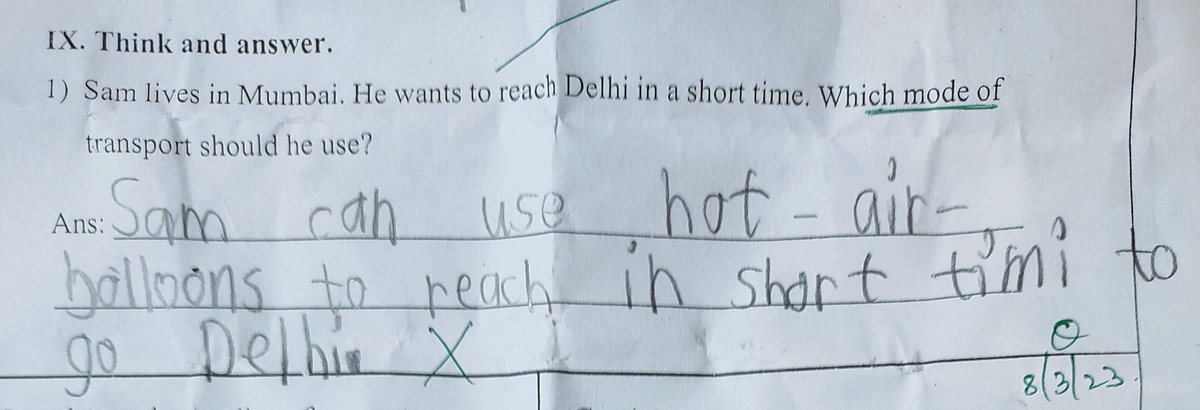 IX. Think and answer.
1) Sam lives in Mumbai. He wants to reach Delhi in a short time. Which mode of
transport should he use?
Ans: Sam can use hot - air-
balloons to reach in short timi to
go Delhi X
8/3/23